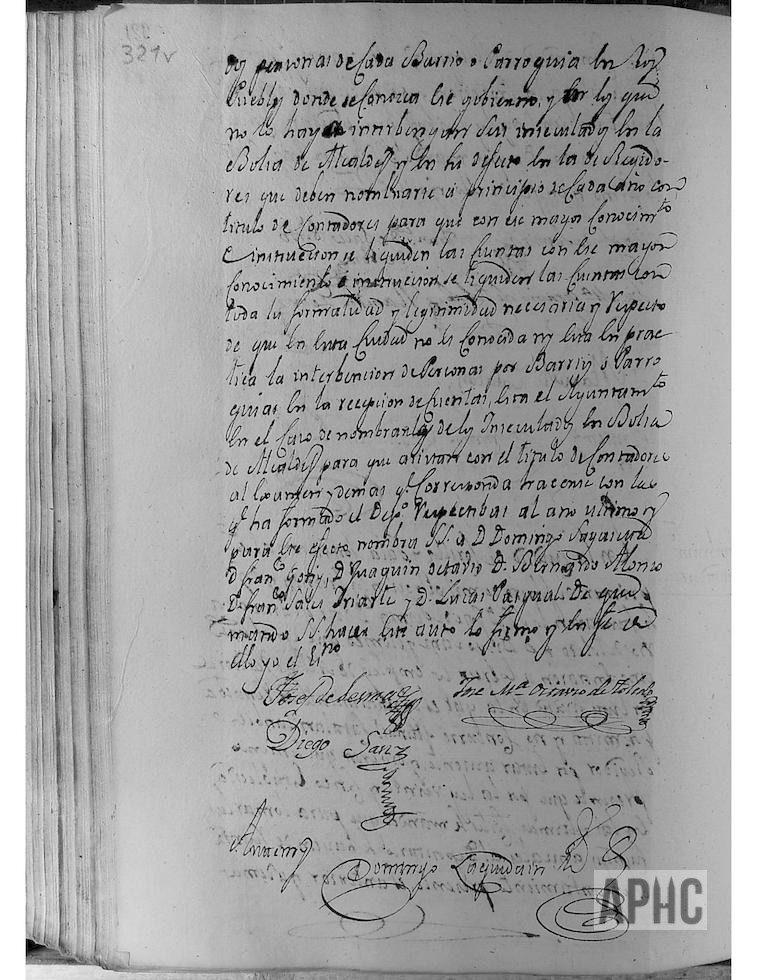 321v
dos personas de Cada Barrio o Parroquia en los
Pueblos donde se Conozca ese gobierno, y por los que
no lo haya interbengan seis inseculados en la
Bolsa de Alcaldes y en su defecto en la de Regido-
res que deben nominarse a principio de Cada año con
titulo de Contadores para que con ese mayor Conocimto
e instruccion se liquiden las Cuentas con ese mayor
Conocimiento e instruccion se liquiden las Cuentas con
toda la formalidad y legitimidad necesaria y Respecto
de que en esta Ciudad no es Conocida ni esta en prac-
tica la interbencion de Personas por Barrios o Parro
quias en la recepcion de Cuentas, esta el Ayuntamto
en el Caso de nombrarlos de los Inseculados en Bolsa
de Alcaldes para que asistan con el titulo de Contadores
al Examen y demas qe Corresponda hacerse con las
qe ha formado el Depo Respectibas al año ultimo y
para este efecto nombra SS a D Domingo
D Franco D Juaquin Octavio D Bernardo Alonso
D Franco Saes Iriarte y D Lucas Pasqual De que
mando SS hacer este auto lo firmo y en fe de
ello yo el Esno
Josef de Lesma
Jose Ma de Toledo
Diego Sanz
Antemi
Domingo Laquidain
APHC